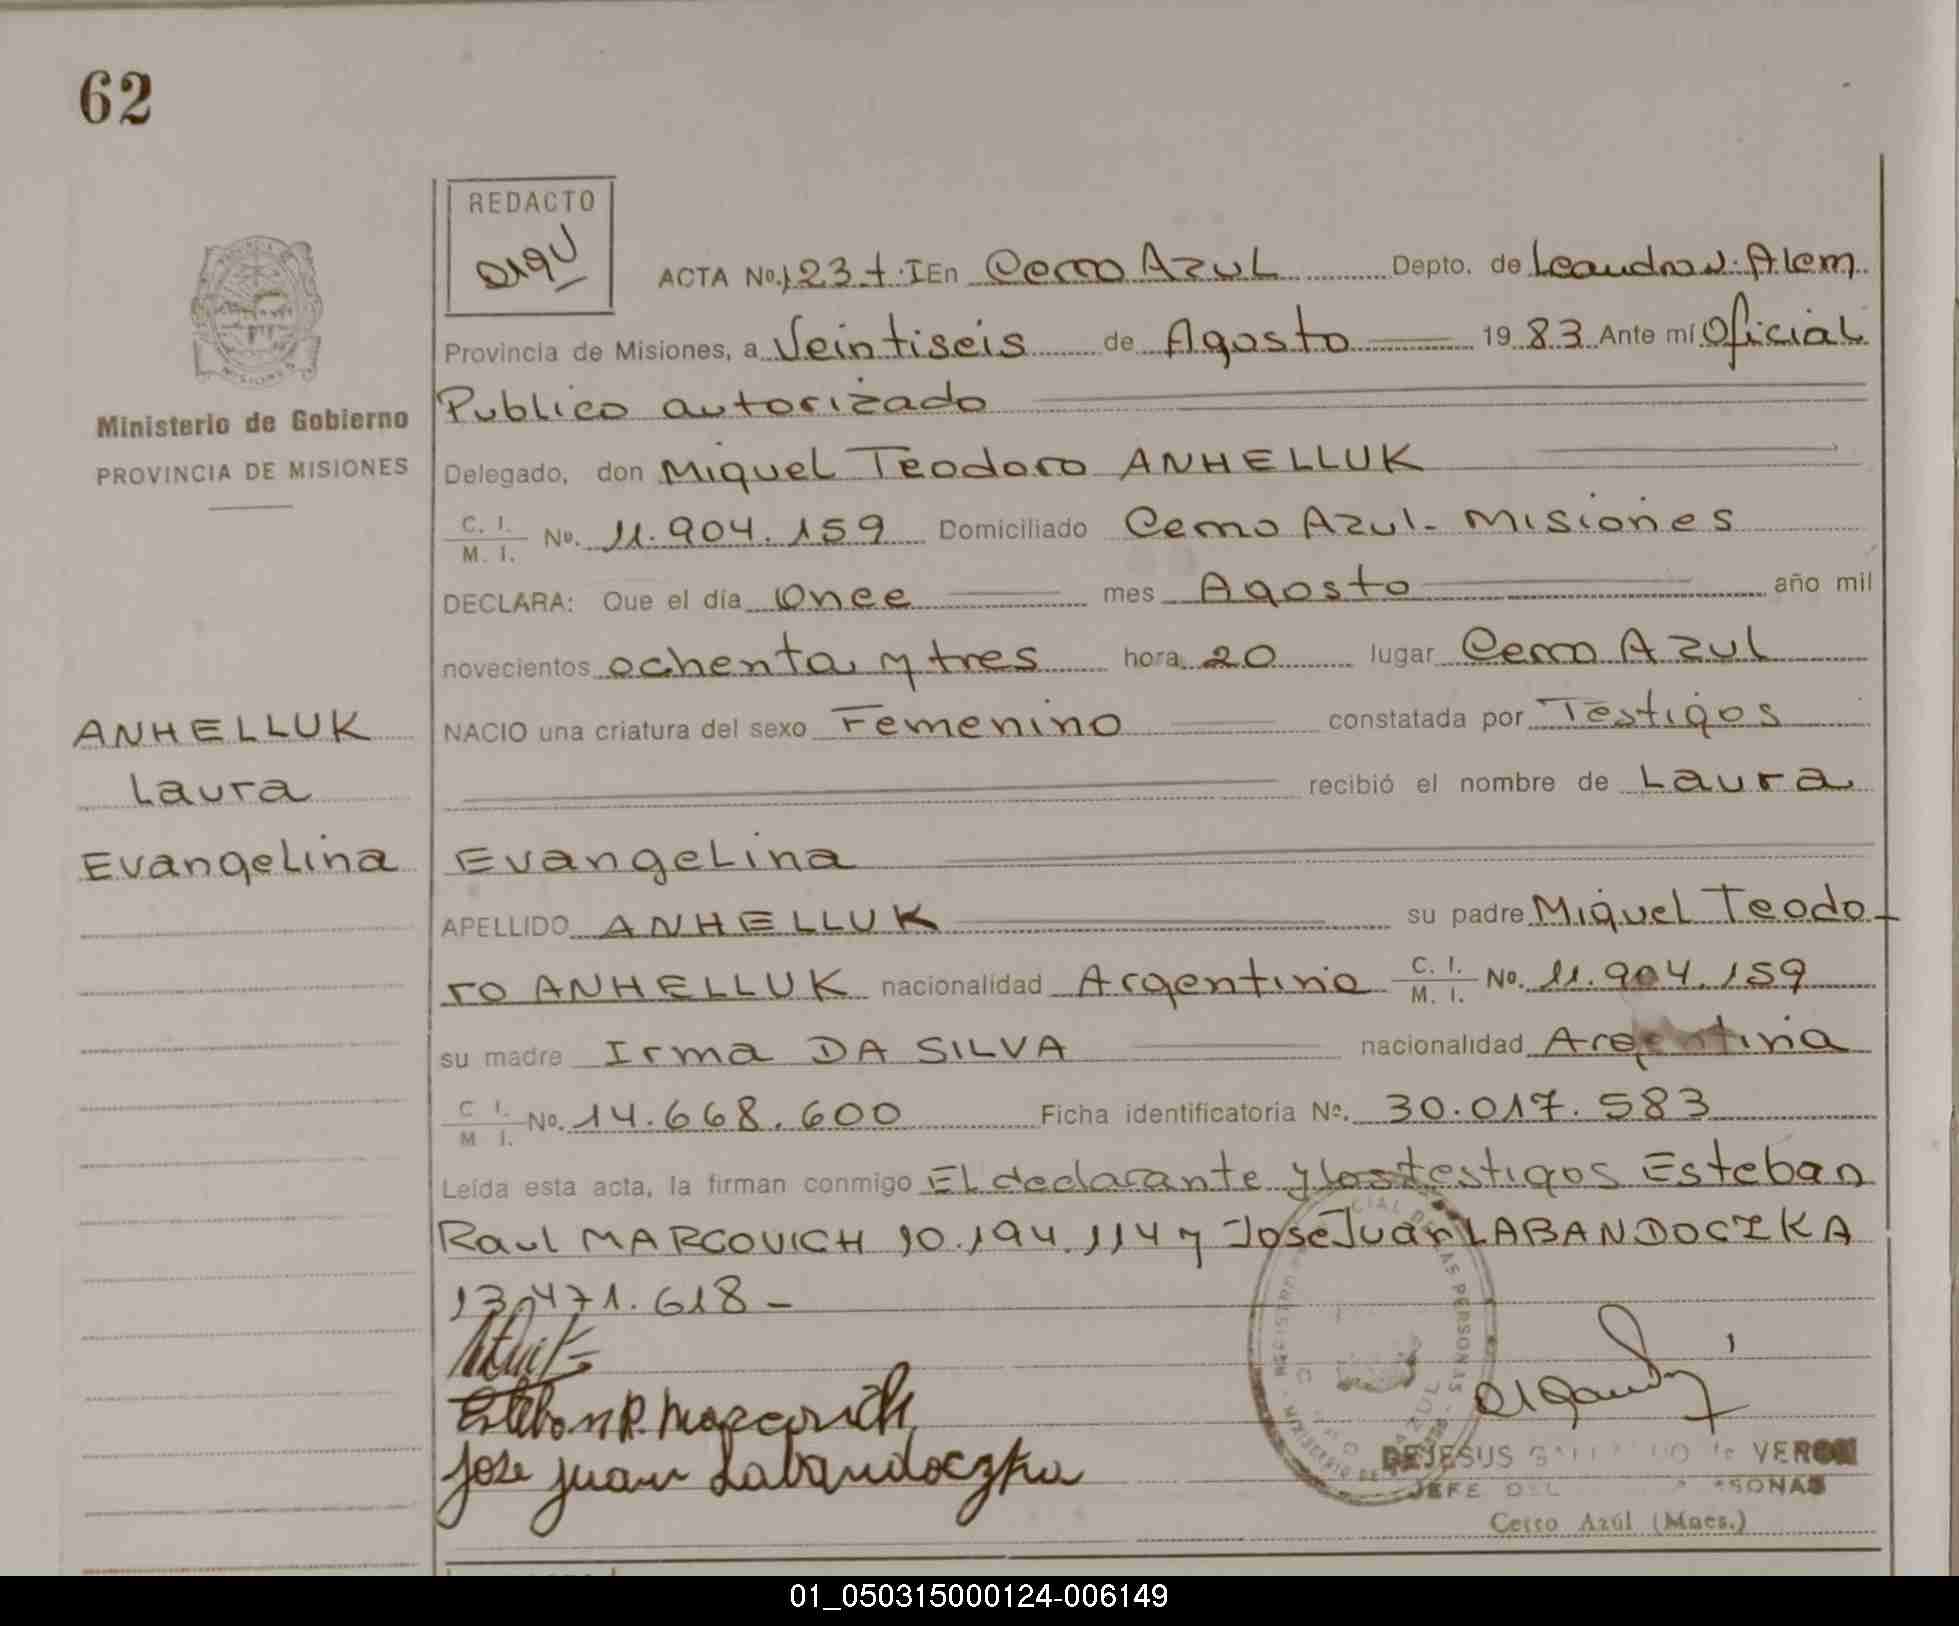 62
REDACTO
ACTA No. 123 t. I En Cerro Azul Depto. de Leandro N. Alem
Provincia de Misiones, a Veintiseis de Agosto 1983 Ante mí Oficial
Publico autorizado
Ministerio de Gobierno
PROVINCIA DE MISIONES
Delegado, don Miguel Teodoro ANHELLUK
C. I.
M. I. No. 11.904.159 Domiciliado Cerro Azul - Misiones
DECLARA: Que el día Once mes Agosto año mil
novecientos ochenta y tres hora 20 lugar Cerro Azul
ANHELLUK
Laura
Evangelina
NACIO una criatura del sexo Femenino constatada por Testigos
recibió el nombre de Laura
Evangelina
APELLIDO ANHELLUK su padre Miguel Teodo-
ro ANHELLUK nacionalidad Argentina C. I. M. I. No. 11.904.159
su madre Irma DA SILVA nacionalidad Argentina
C. I.
M. I. No. 14.668.600 Ficha identificatoria No. 30.017.583
Leída esta acta, la firman conmigo El declarante y los testigos Esteban
Raul MARCOVICH 10.194.114 y Jose Juan LABANDOCZKA
13.471.618 -
Esteban R. Marcovich
Jose Juan Labandoczka
DEJESUS de VERON
JEFE DEL
Cerro Azúl (Mnes.)
01_050315000124-006149